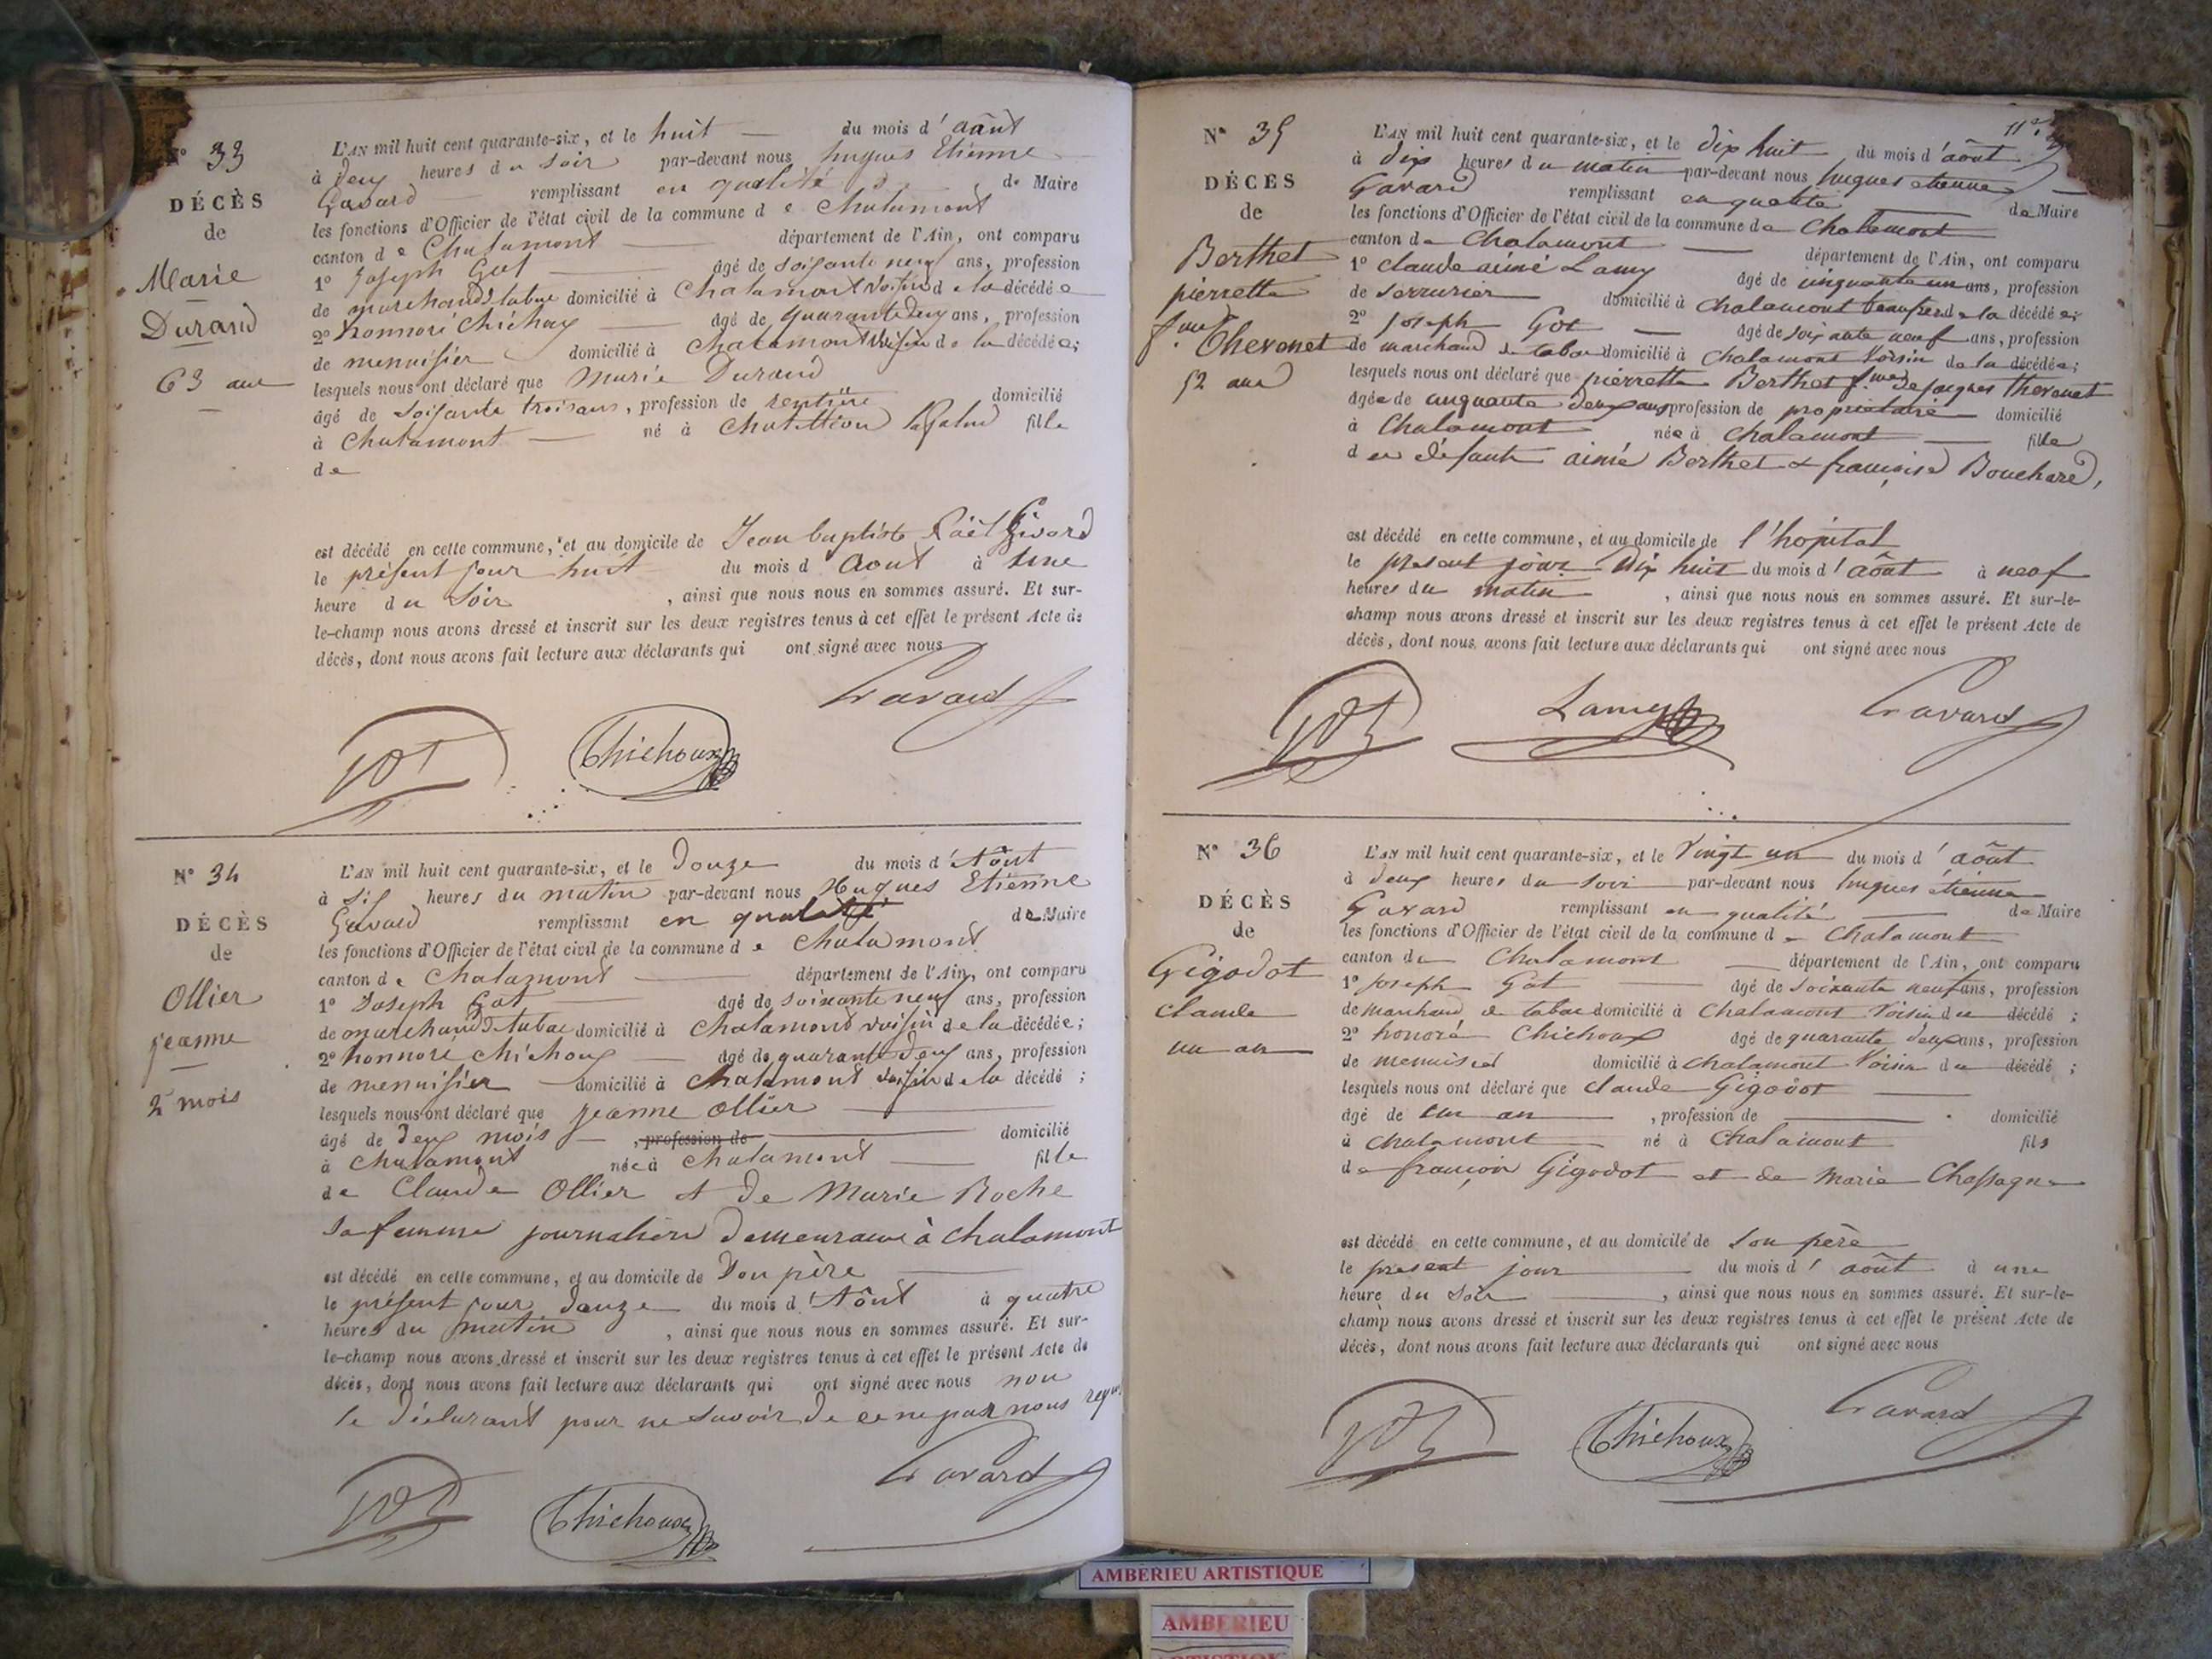 N° 33
DÉCÈS
de
Marie
Durand
63 ans
L'AN mil huit cent quarante-six, et le huit du mois d'août
à deux heures du soir par-devant nous hugues Etienne
Gavard remplissant en qualité de Maire
les fonctions d'Officier de l'état civil de la commune de Chalamont
canton de Chalamont département de l'Ain, ont comparu
1° Joseph Got âgé de soixante neuf ans, profession
de marchand d tabac domicilié à Chalamont voisin de la décédée
2° honnoré Chichoux âgé de quarante deux ans, profession
de menuisier domicilié à Chalamont voisin de la décédée;
lesquels nous ont déclaré que Marie Durand
âgé de soixante trois ans, profession de rentière domicilié
à Chalamont né à Chatillon la Palud fille
de
est décédé en cette commune, et au domicile de Jean baptiste
le présent jour huit du mois d Aout à une
heure du soir, ainsi que nous nous en sommes assuré. Et sur-
le-champ nous avons dressé et inscrit sur les deux registres tenus à cet effet le présent Acte de
décès, dont nous avons fait lecture aux déclarants qui ont signé avec nous
Gavard
Got
Chichoux
N° 34
DÉCÈS
de
Ollier
jeanne
2 mois
L'AN mil huit cent quarante-six, et le Douze du mois d'Aôut
à six heures du matin par-devant nous Hugues Etienne
Gavard remplissant en qualité de Maire
les fonctions d'Officier de l'état civil de la commune de Chalamont
canton de Chalamont département de l'Ain, ont comparu
1° Joseph Got âgé de soixante neuf ans, profession
de marchand d tabac domicilié à Chalamont voisin de la décédée;
2° honnoré Chichoux âgé de quarante deux ans, profession
de menuisier domicilié à Chalamont voisin de la décédé;
lesquels nous ont déclaré que jeanne Ollier
âgé de deux mois, profession de domicilié
à Chalamont née à Chalamont fille
de Claude Ollier et de Marie Roche
sa femme journalière demeurant à Chalamont
est décédé en cette commune, et au domicile de son père
le présent jour douze du mois d'Aôut à quatre
heures du matin, ainsi que nous nous en sommes assuré. Et sur-
le-champ nous avons dressé et inscrit sur les deux registres tenus à cet effet le présent Acte de
décès, dont nous avons fait lecture aux déclarants qui ont signé avec nous non
le déclarant pour ne savoir de ce ne par nous requi
Gavard
Got
Chichoux
N° 35
DÉCÈS
de
Berthet
pierrette
fme
Thevenet
52 ans
L'AN mil huit cent quarante-six, et le dix huit du mois d'août
à dix heures du matin par-devant nous hugues etienne
Gavard remplissant en qualité de Maire
les fonctions d'Officier de l'état civil de la commune de Chalamont
canton de Chalamont département de l'Ain, ont comparu
1° claude aimé Lamy âgé de cinquante un ans, profession
de serrurier domicilié à Chalamont beaufrere de la décédée;
2° Joseph Got âgé de soixante neuf ans, profession
de marchand de tabac domicilié à Chalamont voisin de la décédée;
lesquels nous ont déclaré que pierrette Berthet fme de jacques thevenet
âgée de cinquante deux ans profession de propriétaire domicilié
à Chalamont née à Chalamont fille
de défunts aimé Berthet & françoise Bouchard,
est décédé en cette commune, et au domicile de l'hopital
le present jour dix huit du mois d'août à neuf
heures du matin, ainsi que nous nous en sommes assuré. Et sur-le-
champ nous avons dressé et inscrit sur les deux registres tenus à cet effet le présent Acte de
décès, dont nous avons fait lecture aux déclarants qui ont signé avec nous
Got
Lamy
Gavard
N° 36
DÉCÈS
de
Gigodot
claude
un an
L'AN mil huit cent quarante-six, et le Vingt un du mois d'août
à deux heures du soir par-devant nous hugues étienne
Gavard remplissant en qualité de Maire
les fonctions d'Officier de l'état civil de la commune de Chalamont
canton de Chalamont département de l'Ain, ont comparu
1° Joseph Got âgé de soixante neuf ans, profession
de marchand de tabac domicilié à Chalamont voisin du décédé;
2° honoré Chichoux âgé de quarante deux ans, profession
de menuisier domicilié à chalamont voisin du décédé;
lesquels nous ont déclaré que claude Gigodot
âgé de un an, profession de domicilié
à chalamont né à Chalamont fils
de françois Gigodot et de marie Chassagne
est décédé en cette commune, et au domicile de son père
le present jour du mois d'août à une
heure du soir, ainsi que nous nous en sommes assuré. Et sur-le-
champ nous avons dressé et inscrit sur les deux registres tenus à cet effet le présent Acte de
décès, dont nous avons fait lecture aux déclarants qui ont signé avec nous
Got
Chichoux
Gavard
AMBERIEU ARTISTIQUE
AMBERIEU
ARTISTIQUE